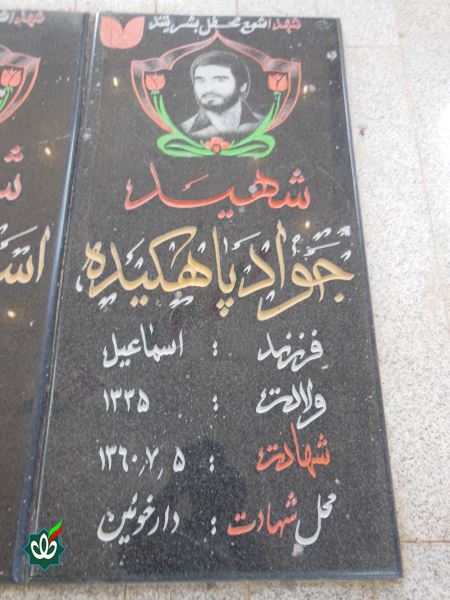 شهدا شمع محفل بشریتند
شهید
جواد پاهکیده
فرزند : اسماعیل
ولادت : ۱۳۳۵
شهادت : ۱۳۶۰٫۷٫۵
محل شهادت : دارخوئین